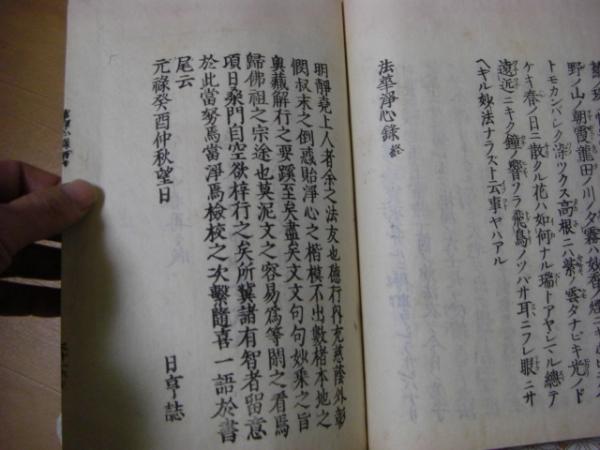 野ノ山ノ朝霞龍田ノ川ノ夕霧ハ妙香ノ煙
トモカンバレク染ツクス高根ニハ紫ノ雲タナビキ光ノド
ケキ春ノ日ニ散タル花ハ如何ナル瑞トアヤシマル總テ
遠近ニキク鐘ノ響ソラ飛鳥ノツバサ耳ニフレ眼ニサ
ヘギル妙法ナラスト云事ヤハアル
法華淨心錄 終
明靜堯上人者余之法友也德行內充慈蔭外彰
憫叔末之倒惑貽淨心之楷模不出數楮本地之
奧藏解行之要蹊至矣盡矣文文句句妙乘之旨
歸佛祖之宗途也莫泥文之容易爲等閑之看焉
項日桑門自空欲梓行之矣所冀諸有智者留意
於此當努焉當淨焉檢校之次繫隨喜一語於書
尾云
元祿癸酉仲秋望日
日亨誌